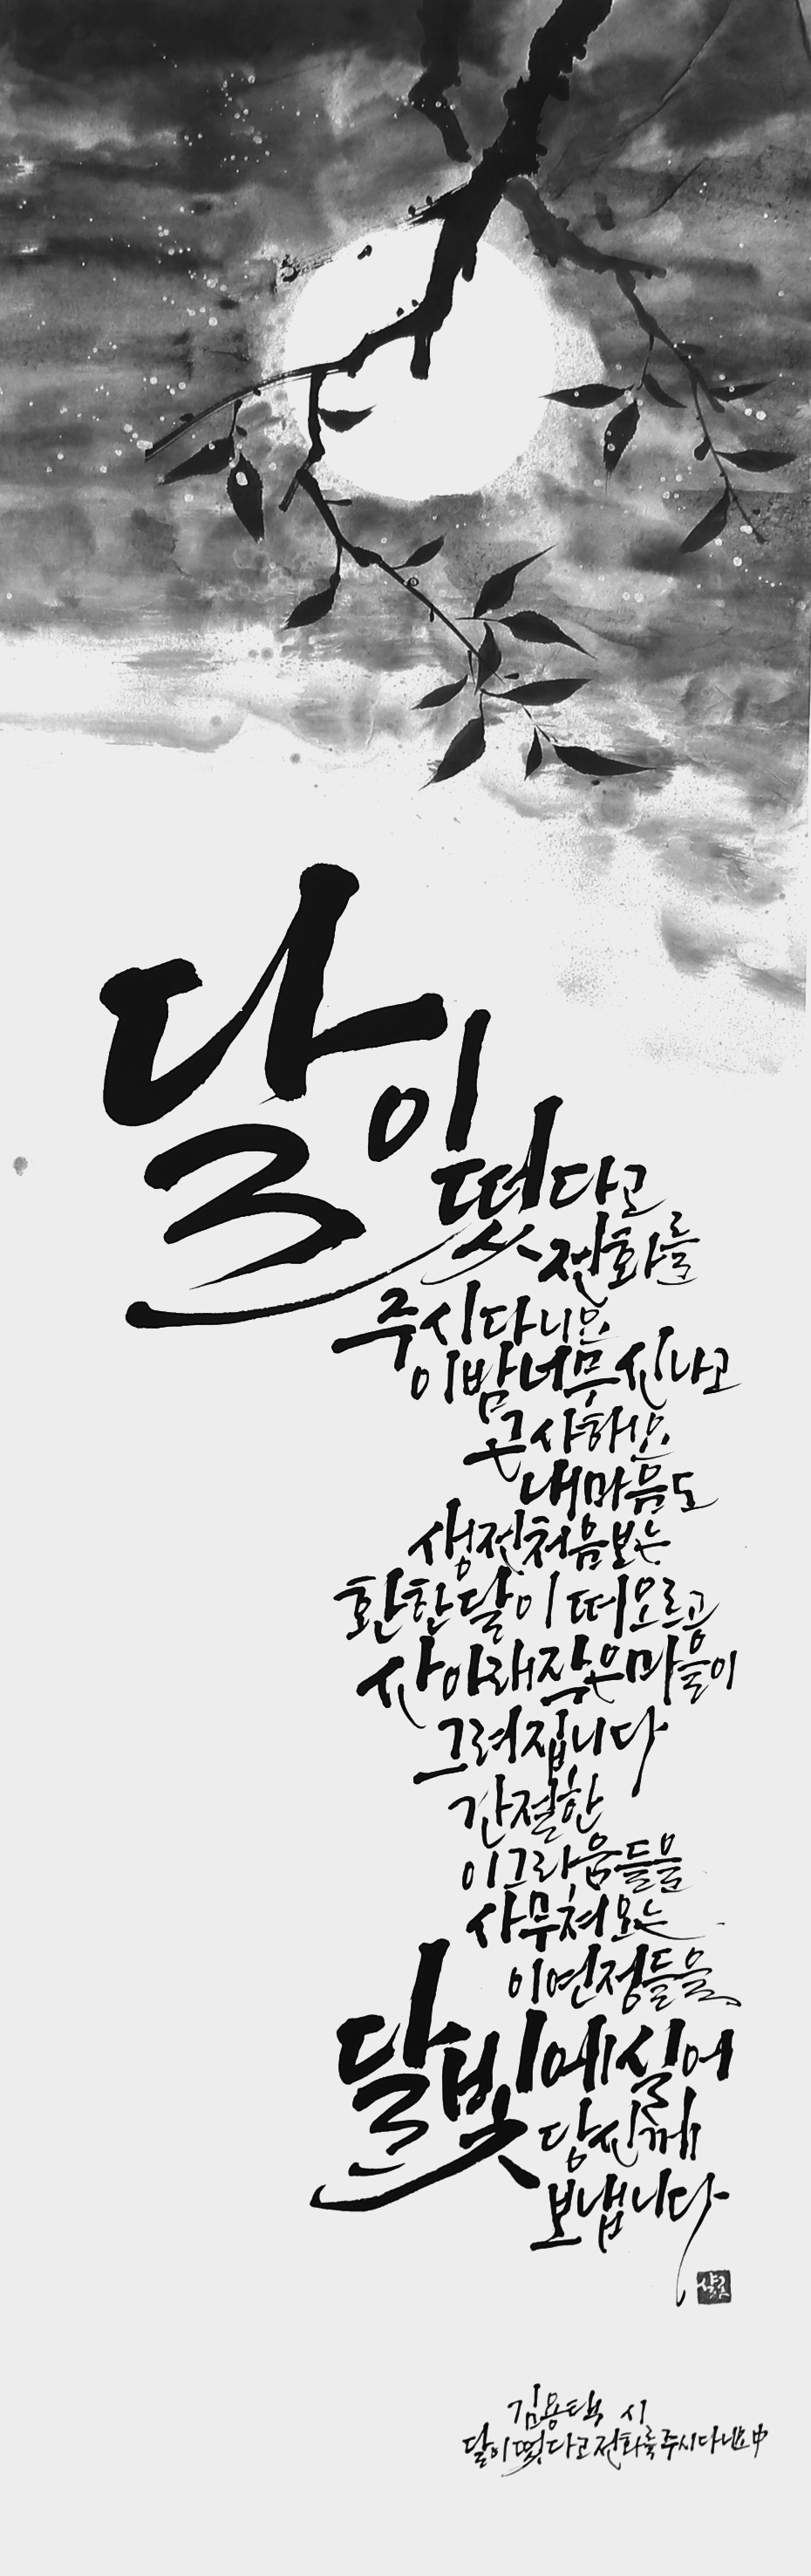 달이떴다고
전화를
주시다니요
이밤너무신나고
근사해요
내마음도
생전처음보는
환한달이떠오르고
산아래작은마을이
그려집니다
간절한
이그리움들을
사무쳐오는
이연정들을
달빛에실어
당신께
보냅니다
김용택 시
달이떴다고전화를주시다니요中